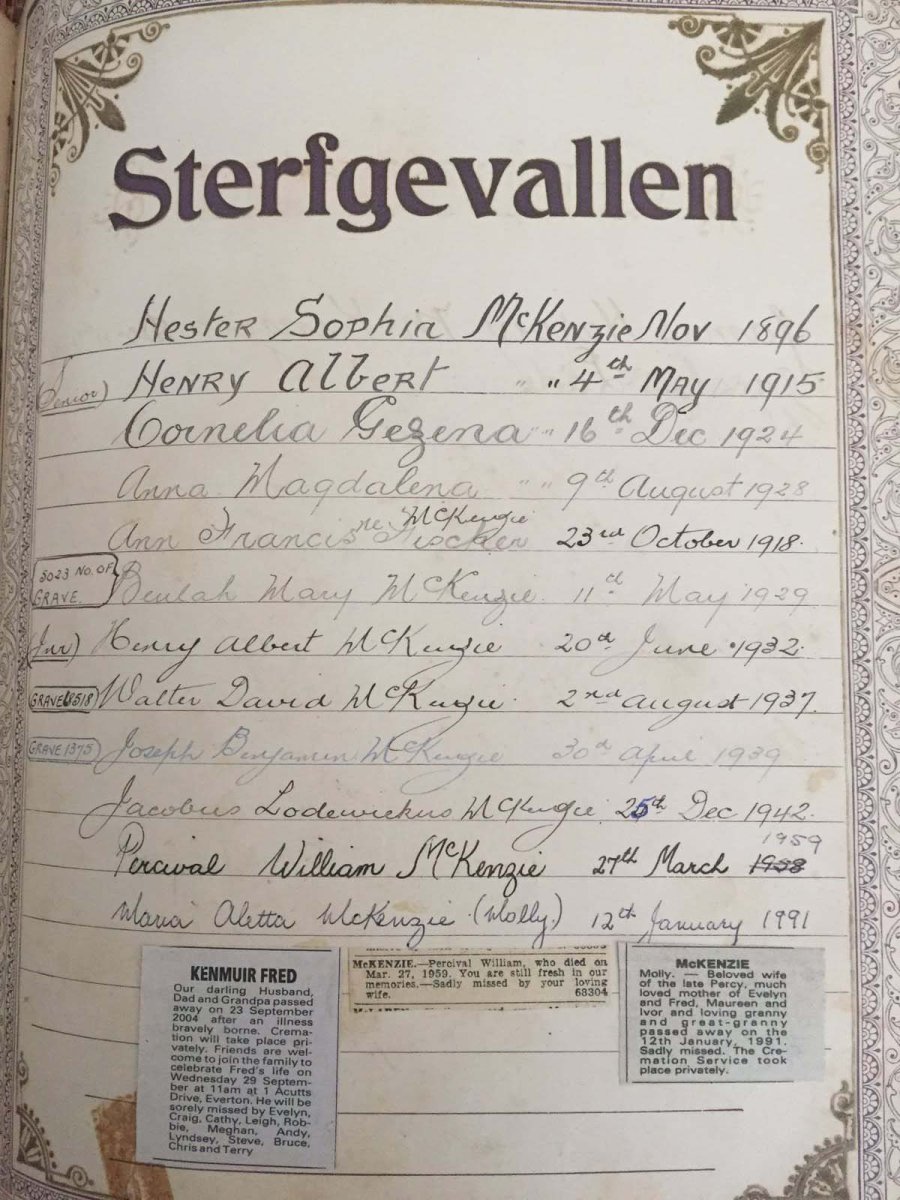 Sterfgevallen
Hester Sophia McKenzie Nov 1896
(Senior) Henry Albert " " 4th May 1915
Cornelia Gezena " " 16th Dec 1924
Anna Magdalena " " 9th August 1928
McKenzie
Ann Francis ne Fischer 23rd October 1918.
5023 No. OF
GRAVE. Beulah Mary McKenzie. 11th May 1929
(Jnr) Henry Albert McKenzie 20th June 1932.
GRAVE 8518 Walter David McKenzie. 2nd August 1937.
GRAVE 1375 Joseph Benjamin McKenzie 30th April 1939
Jacobus Lodewickus McKenzie. 25th Dec 1942.
1959
Percival William McKenzie 27th March 1938
Maria Aletta McKenzie (Molly.) 12th January 1991
KENMUIR FRED
Our darling Husband,
Dad and Grandpa passed
away on 23 September
2004 after an illness
bravely borne. Crema-
tion will take place pri-
vately. Friends are wel-
come to join the family to
celebrate Fred's life on
Wednesday 29 Septem-
ber at 11am at 1 Acutts
Drive, Everton. He will be
sorely missed by Evelyn,
Craig, Cathy, Leigh, Rob-
bie, Meghan, Andy,
Lyndsey, Steve, Bruce,
Chris and Terry
McKENZIE.—Percival William, who died on
Mar. 27, 1959. You are still fresh in our
memories.—Sadly missed by your loving
wife. 68304
McKENZIE
Molly. — Beloved wife
of the late Percy, much
loved mother of Evelyn
and Fred, Maureen and
Ivor and loving granny
and great-granny
passed away on the
12th January, 1991.
Sadly missed. The Cre-
mation Service took
place privately.